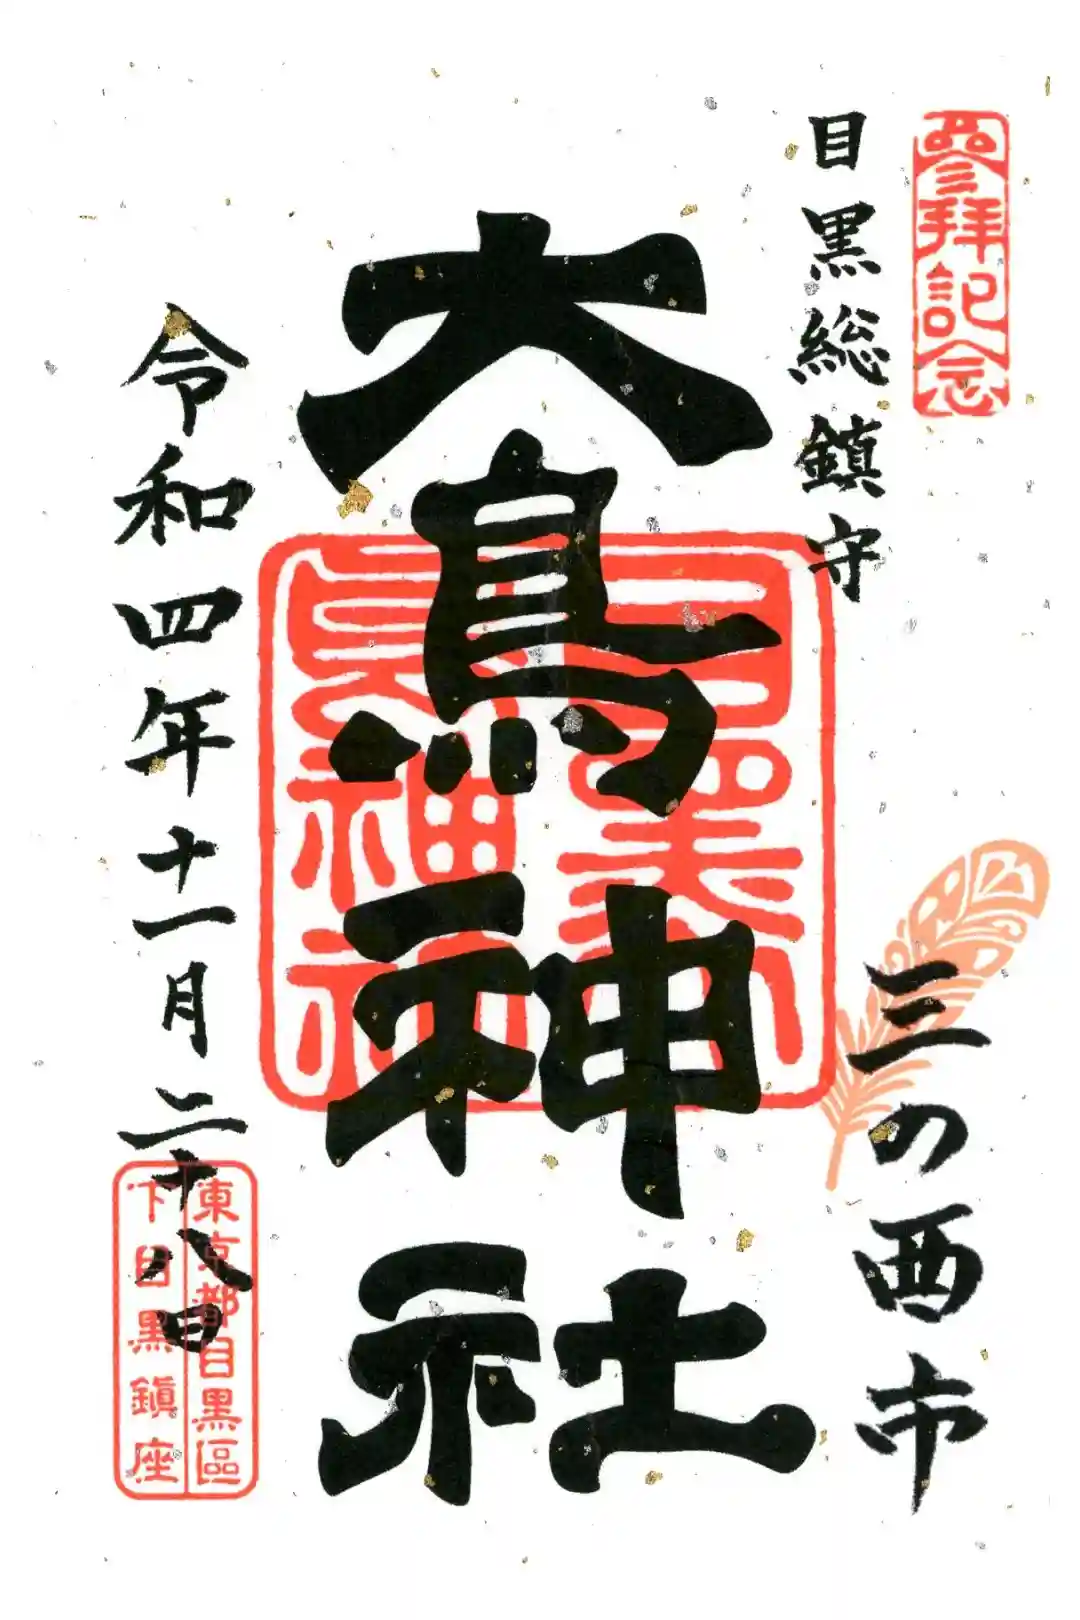 參拝記念
目黒総鎮守
三の酉市
大鳥神社
令和四年十一月二十八日
東京都目黒區
下目黒鎮座